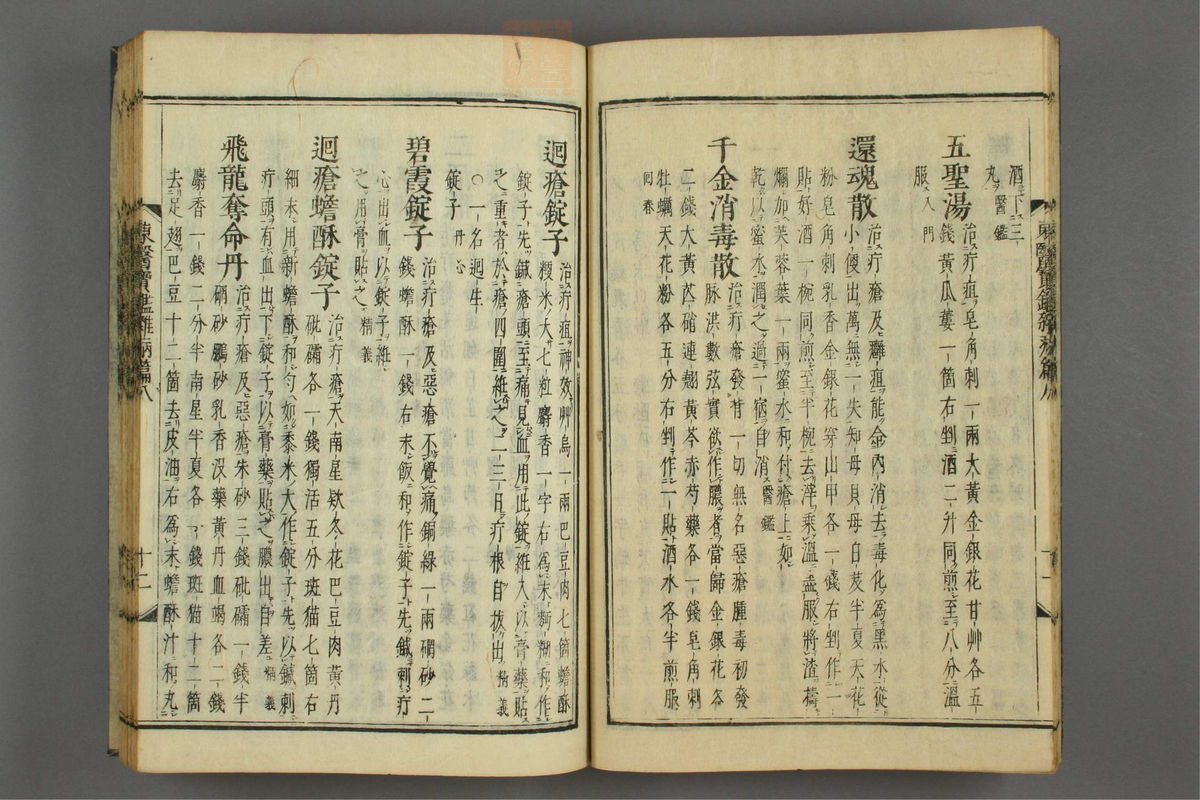 酒下三
丸醫鑑
五聖湯 治疔疽皂角刺一兩大黃金銀花甘艸各五
錢黃瓜蔞一箇右剉酒二升同煎至八分溫
服入門
還魂散 治疔瘡及癰疽能令內消去毒化爲黑水從
小便出萬無一失知母貝母白芨半夏天花
粉皂角刺乳香金銀花穿山甲各一錢右剉作一
貼好酒一椀同煎至半椀去滓乘溫盡服將渣擣
爛加芙蓉葉一兩蜜水和付瘡上如
乾以蜜水潤之過一宿自消醫鑑
千金消毒散 治疔瘡發背一切無名惡瘡腫毒初發
脉洪數弦實欲作膿者當歸金銀花各
二錢大黃芒硝連翹黃芩赤芍藥各一錢皂角刺
牡蠣天花粉各五分右剉作一貼酒水各半煎服
回春
東醫寶鑑雜病篇八
十一
迴瘡錠子 治疔疽神效艸烏一兩巴豆肉七箇蟾酥
粳米大七粒麝香一字右爲末麪糊和作
錠子先鍼瘡頭至痛見血用此錠紝入以膏藥貼
之重者於瘡四圍紝之二三日疔根自拔出精義
○一名迴生
錠子丹心
碧霞錠子 治疔瘡及惡瘡不覺痛銅綠一兩硇砂二
錢蟾酥一錢右末飯和作錠子先鍼刺疔
心出血以錠子紝
之用膏貼之精義
迴瘡蟾酥錠子 治疔瘡天南星欵冬花巴豆肉黃丹
砒礵各一錢獨活五分斑猫七箇右
細末用新蟾酥和勻如黍米大作錠子先以鍼刺
疔頭有血出下錠子以膏藥貼之膿出自差精義
飛龍奪命丹 治疔瘡及惡瘡朱砂三錢砒礵一錢半
硇砂鵬砂乳香沒藥黃丹血竭各二錢
麝香一錢二分半南星半夏各一錢斑猫十二箇
去足翅巴豆十二箇去皮油右爲末蟾酥汁和丸
東醫寶鑑雜病篇八
十二